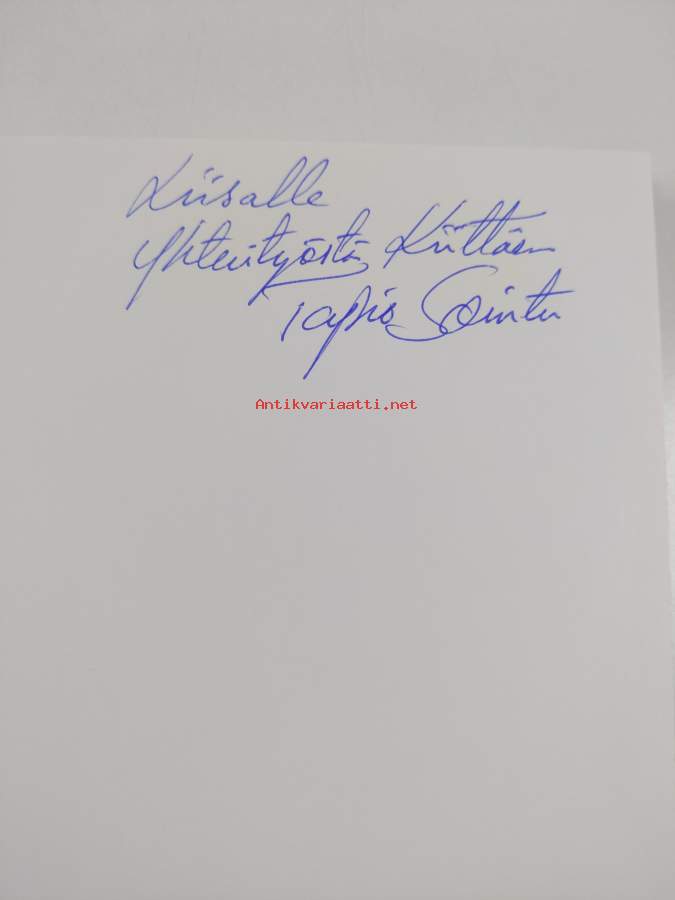 Liisalle
Yhteistyöstä Kiittäen
Tapio Sointu
Antikvariaatti.net